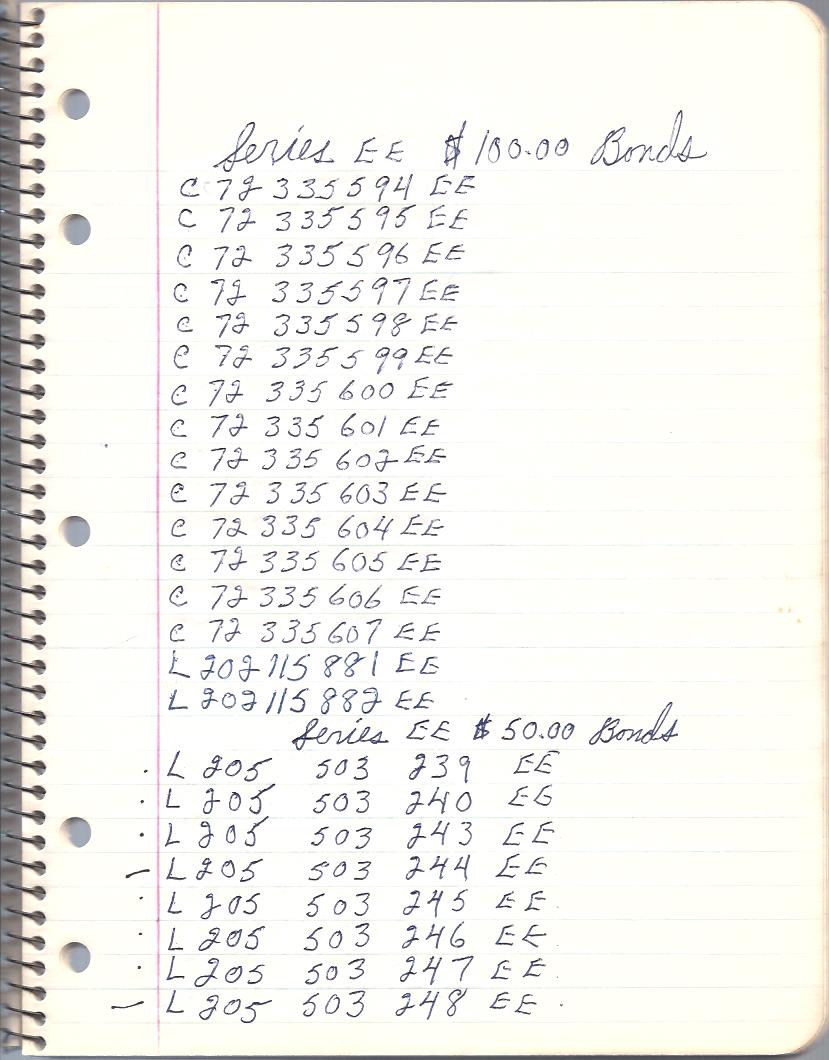 Series EE $100.00 Bonds
C 72 335594 EE
C 72 335595 EE
C 72 335596 EE
C 72 335597 EE
C 72 335598 EE
C 72 335599 EE
C 72 335 600 EE
C 72 335 601 EE
C 72 335 602 EE
C 72 335 603 EE
C 72 335 604 EE
C 72 335 605 EE
C 72 335 606 EE
C 72 335 607 EE
L 202 115 881 EE
L 202 115 882 EE
Series EE $50.00 Bonds
· L 205 503 239 EE
· L 205 503 240 EE
· L 205 503 243 EE
– L 205 503 244 EE
· L 205 503 245 EE
· L 205 503 246 EE
· L 205 503 247 EE
– L 205 503 248 EE